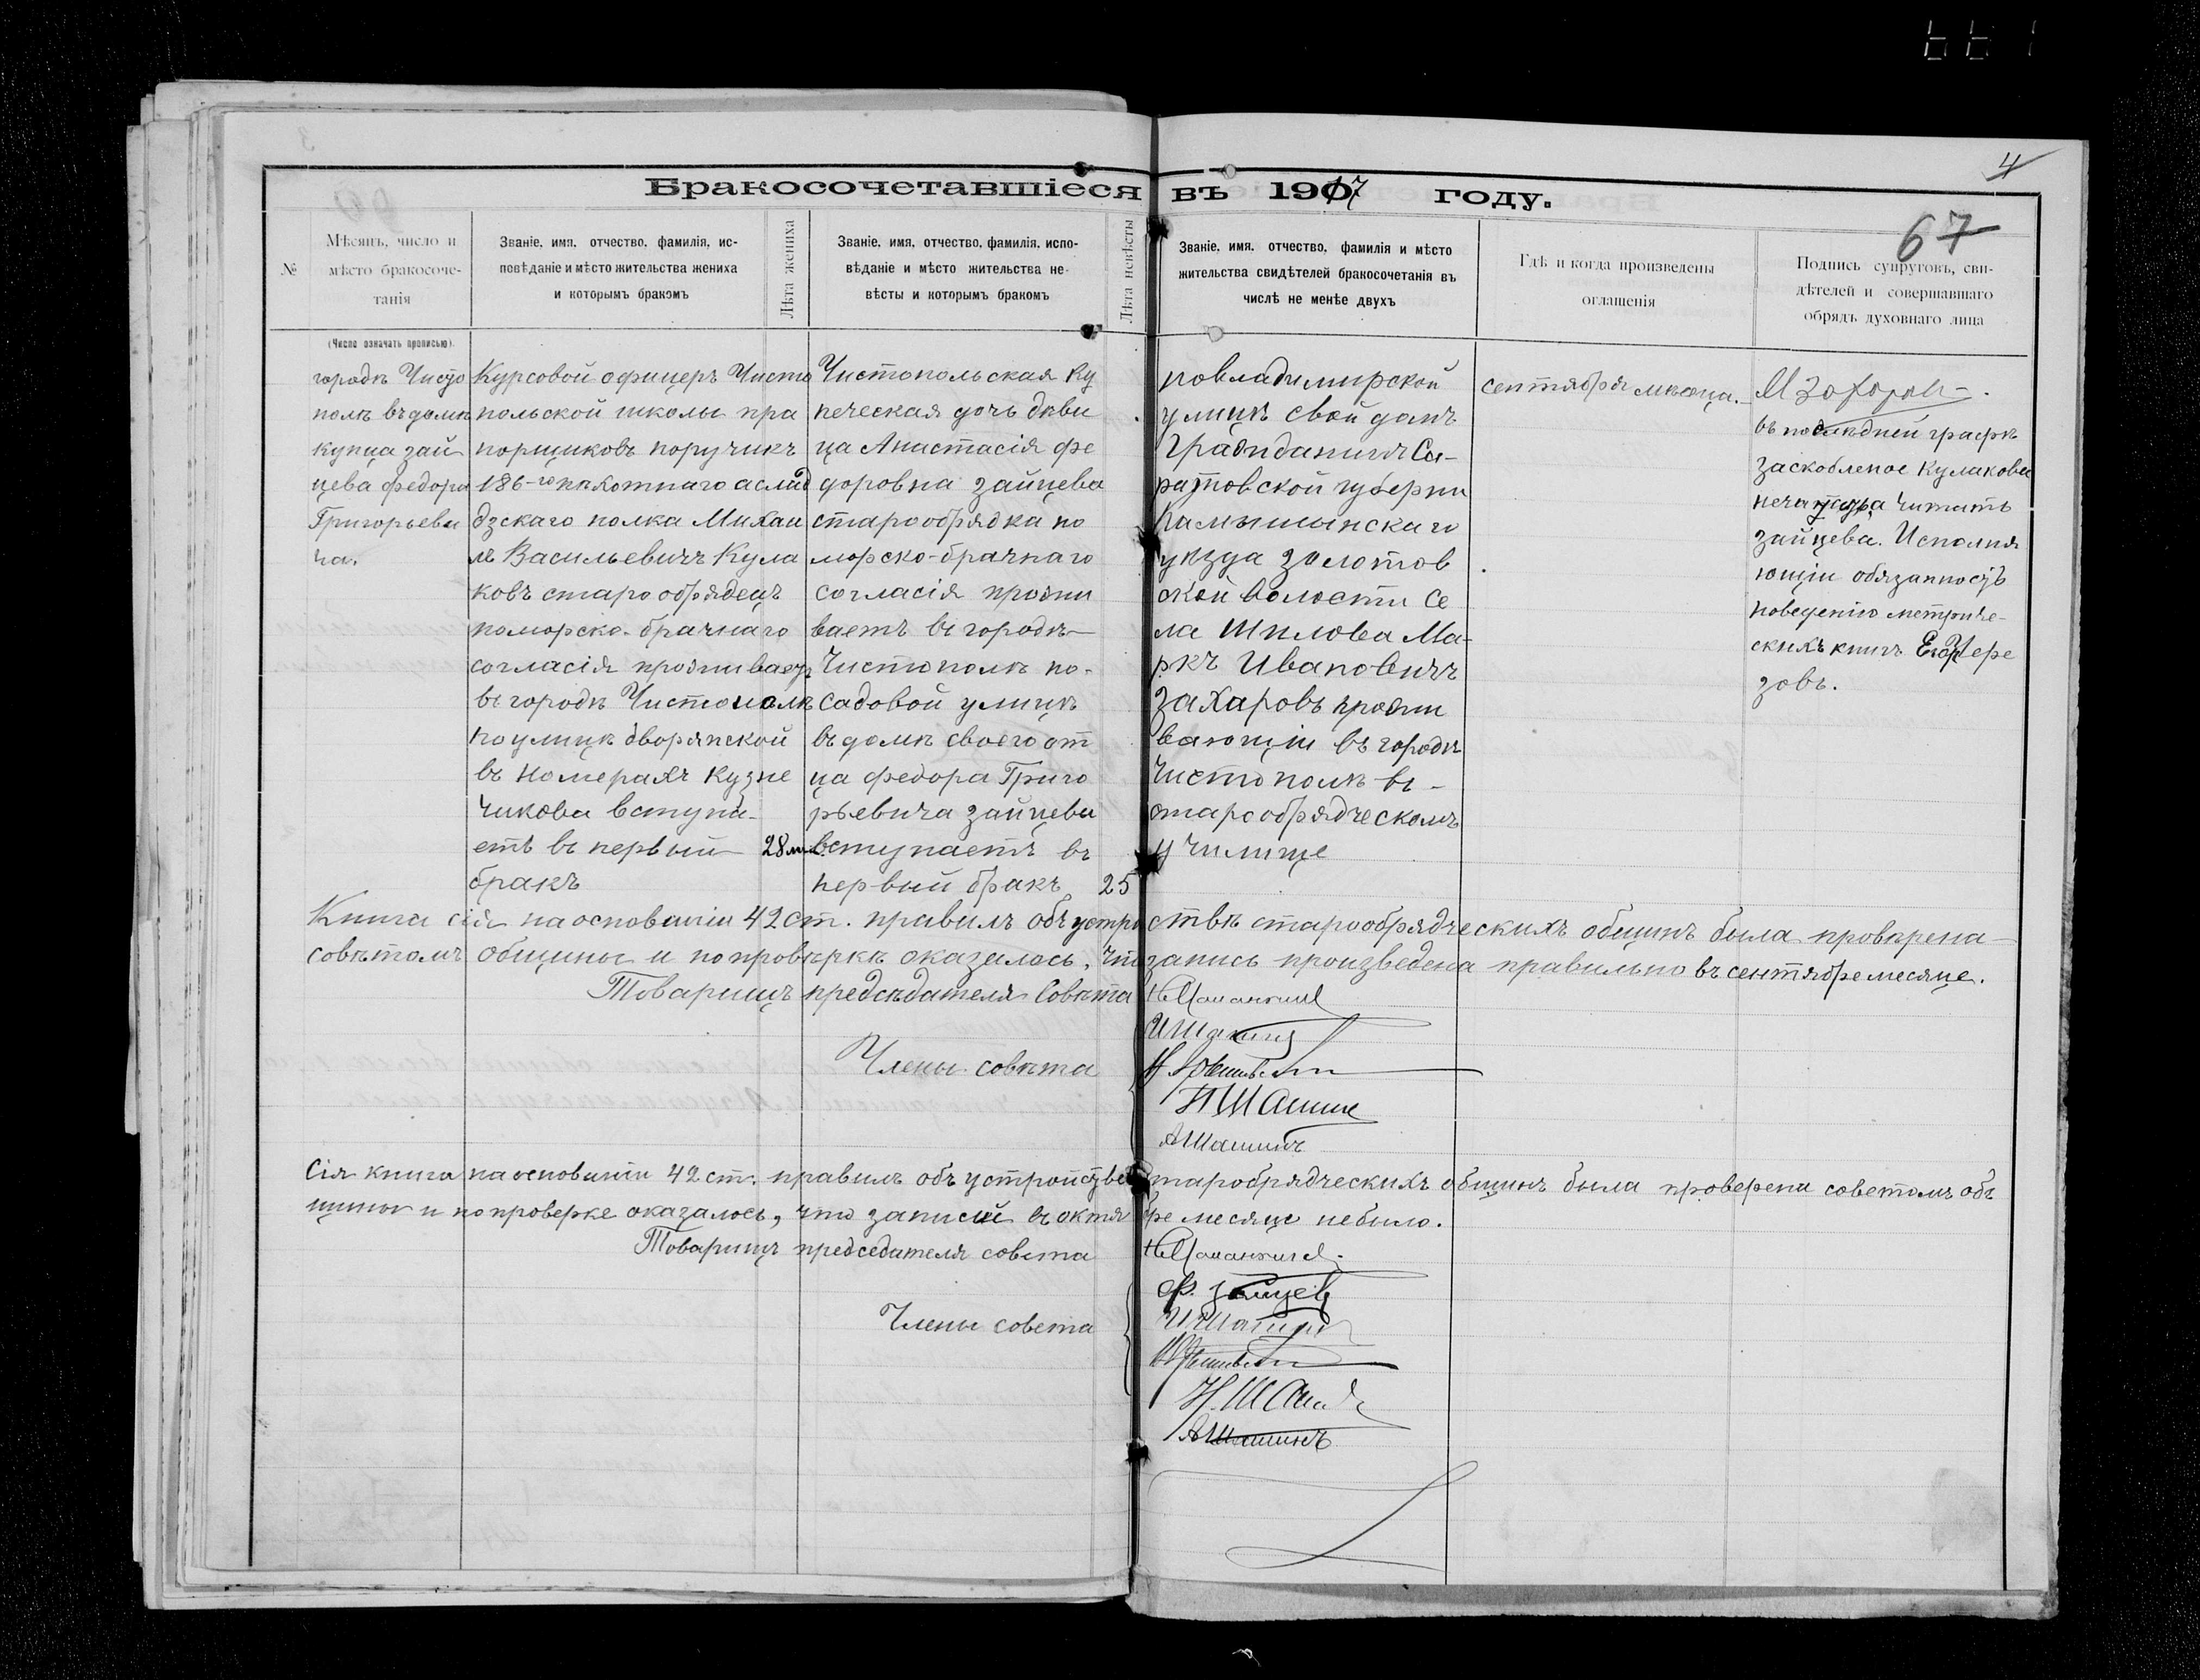 4
67
Бракосочетавшіеся въ 1917 году.
№
Мѣсяцъ, число и
мѣсто бракосоче-
танія
Званіе, имя, отчество, фамилія, ис-
повѣданіе и мѣсто жительства жениха
и которымъ бракомъ
Лѣта жениха
Званіе, имя, отчество, фамилія, испо-
вѣданіе и мѣсто жительства не-
вѣсты и которымъ бракомъ
Лѣта невѣсты
Званіе, имя, отчество, фамилія и мѣсто
жительства свидѣтелей бракосочетанія въ
числѣ не менѣе двухъ
Гдѣ и когда произведены
оглашенія
Подпись супруговъ, сви-
дѣтелей и совершавшаго
обрядъ духовнаго лица
(Число означать прописью).
городѣ Чисто
полѣ въ домѣ
купца Зай
цева Федора
Григорьеви
ча.
Курсовой офицеръ Чисто
польской школы пра
порщиковъ поручикъ
186-го пѣхотнаго аслан
дзскаго полка Михаи
лъ Васильевичъ Кула
ковъ старообрядецъ
поморско-брачнаго
согласія проживаетъ
въ городѣ Чистополѣ
по улицѣ дворянской
въ номерахъ Кузне
чикова вступа-
етъ въ первый
бракъ
28
Чистопольская ку
печеская дочь дѣви
ца Анастасія Фе
доровна Зайцева
старообрядка по
морско-брачнаго
согласія прожи
ваетъ въ городѣ
Чистополѣ по-
садовой улицѣ
въ домѣ своего от
ца Федора Григо
рьевича Зайцева
вступаетъ въ
первый бракъ
25
по владимирской
улицѣ свой домъ
Гражданинъ Са-
ратовской губерни
Камышинскаго
уѣзда Золотов
ской волости се
ла Шилова Ма-
ркъ Ивановичъ
Захаровъ прожи
вающій въ городѣ
Чистополѣ въ
старообрядческомъ
училище
сентября мѣсяца.
М Захаровъ
въ последней графѣ
заскобленое Кулакова
читать
Зайцева. Исполня
ющій обязанность
по ведению метриче-
скихъ книгъ Егор Чере
зовъ.
Книга сія на основаніи 42 ст. правилъ объ устройствѣ старообрядческихъ общинъ была провѣрена
совѣтомъ общины и по провѣркѣ оказалось, что запись произведена правильно въ сентябре месяце.
Товарищъ предсѣдателя Совѣта
Члены совѣта
АШашинъ
Сія книга на основаніи 42 ст. правилъ объ устройстве старобрядческихъ общинъ была проверена советомъ об
щины и по проверке оказалось, что записей въ октябре месяце небыло.
Товарищъ председателя совета
Ф. Зайцев
Члены совета
АШашинъ